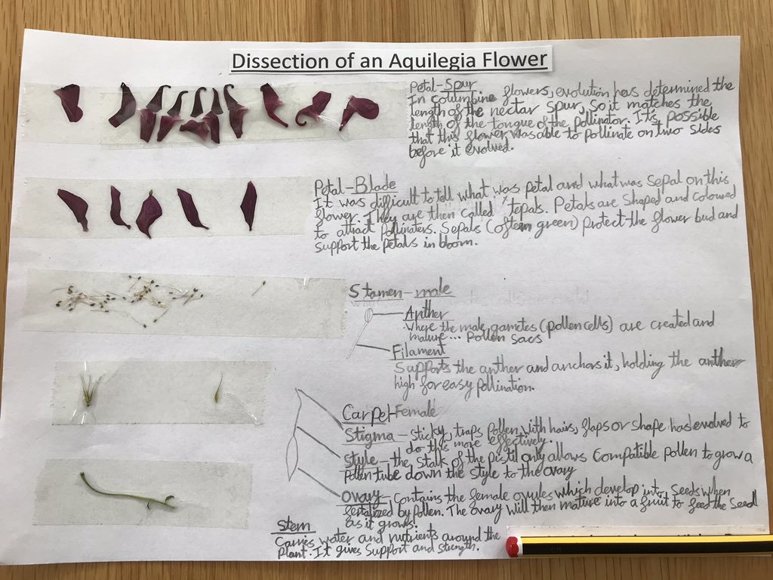 Dissection of an Aquilegia Flower
Petal-Spur
In columbine flowers, evolution has determined the
length of the nectar spur, so it matches the
length of the tongue of the pollinator. It's possible
that this flower was able to pollinate on two sides
before it evolved.
Petal-Blade
It was difficult to tell what was petal and what was sepal on this
flower. They are then called 'tepals. Petals are shaped and coloured
to attract pollinators. Sepals (often green) protect the flower bud and
support the petals in bloom.
Stamen-male
Anther
Where the male gametes (pollen cells) are created and
mature... Pollen sacs
Filament
Supports the anther and anchors it, holding the anther
high for easy pollination.
Carpel-Female
Stigma-Sticky, traps pollen with hairs, flaps or shape has evolved to
do this more effectively.
Style-the stalk of the pistil only allows compatible pollen to grow a
pollen tube down the style to the ovary
Ovary-Contains the female ovules which develop into seeds when
fertalized by pollen. The ovary will then mature into a fruit to feed the seed
as it grows.
Stem
Carries water and nutrients around the
plant. It gives support and strength.